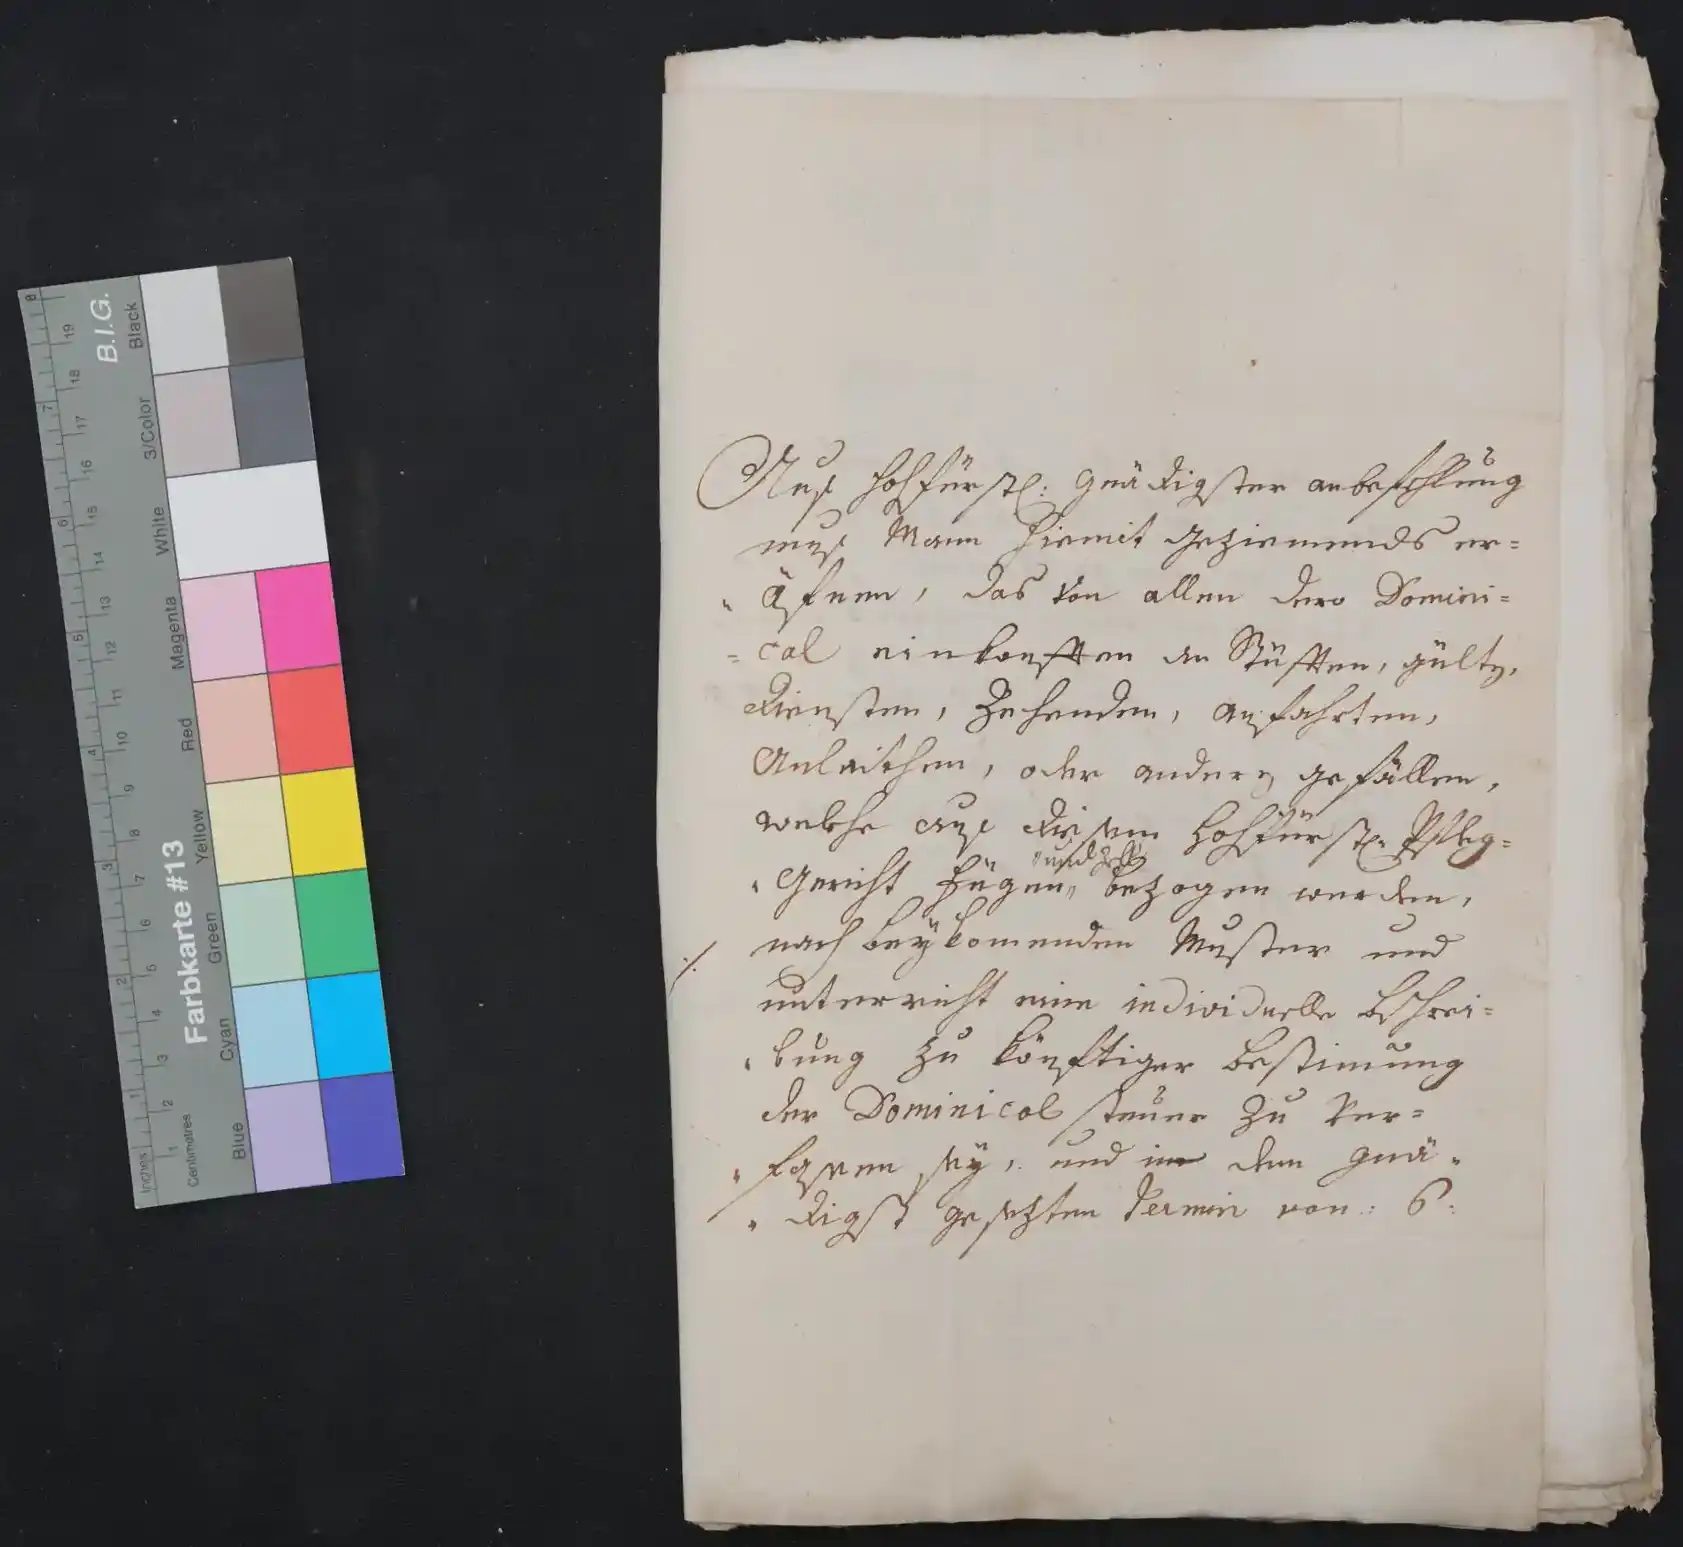 B.I.G.
Farbkarte #13
Black
3/Color
White
Magenta
Red
Yellow
Green
Cyan
Blue
Inches
Centimetres
1 2 3 4 5 6 7 8
1 2 3 4 5 6 7 8 9 10 11 12 13 14 15 16 17 18 19
Aus hochfürstl: gnädigster anbefehlung
mus Mann hiemit geziemends er=
öfnen, das von allen dero Domini=
=cal einkonfften an Stüfften, gülty,
diensten, Zehenden, ausfahrten,
Anleithen, oder andern gefällen,
welche aus diesem hochfürstl. Pfleg=
Gericht Fügen bezogen werden,
nach beÿkomenden Muster und
unterricht eine individuelle bschrei=
bung zu könftiger bestimung
der Dominical steuer zu ver=
fassen seÿ, und in dem gnä=
digst gesezten Termin von: 6: